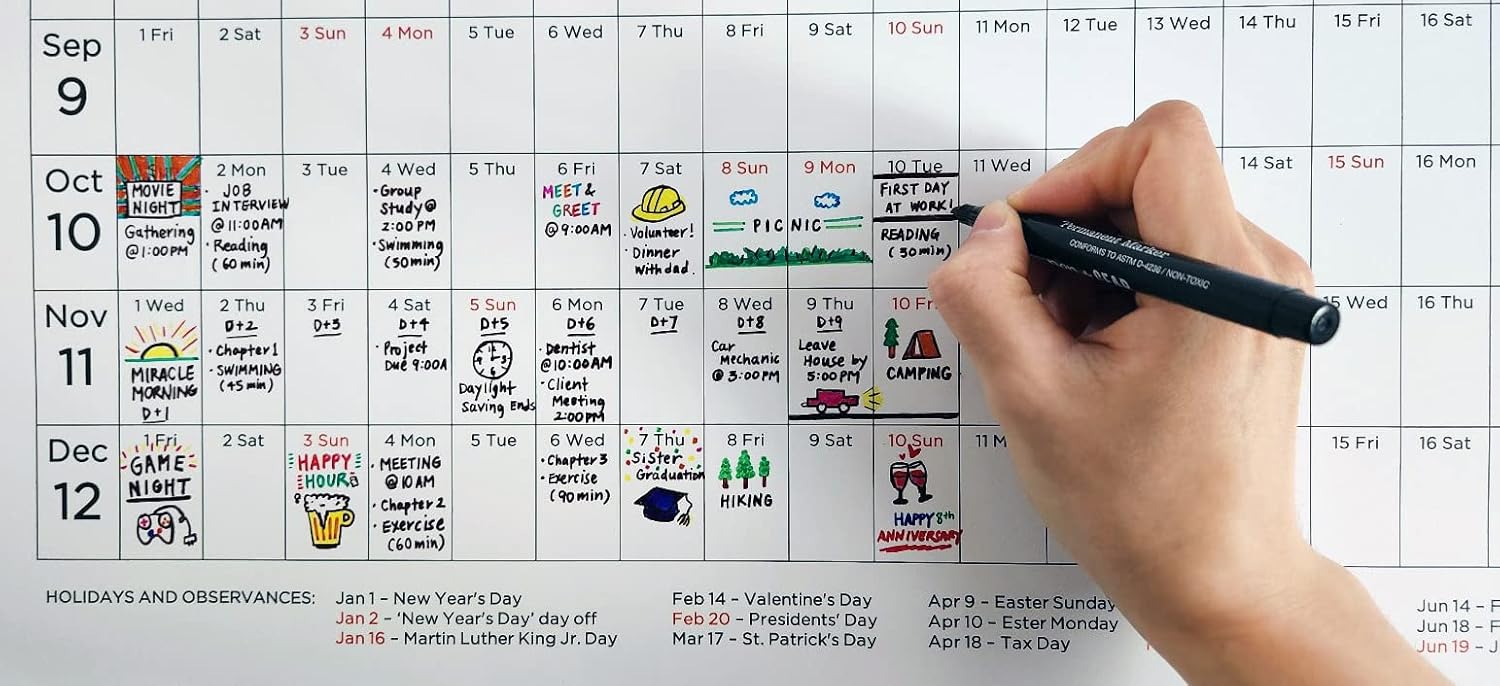 Sep
9
1 Fri
2 Sat
3 Sun
4 Mon
5 Tue
6 Wed
7 Thu
8 Fri
9 Sat
10 Sun
11 Mon
12 Tue
13 Wed
14 Thu
15 Fri
16 Sat
Oct
10
MOVIE
NIGHT
Gathering
@1:00PM
2 Mon
· JOB
INTERVIEW
@11:00AM
· Reading
(60min)
3 Tue
4 Wed
·Group
Study@
2:00PM
·Swimming
(50min)
5 Thu
6 Fri
MEET &
GREET
@9:00AM
7 Sat
· Volunteer!
· Dinner
With dad.
8 Sun
9 Mon
PICNIC
10 Tue
FIRST DAY
AT WORK!
READING
(30min)
11 Wed
14 Sat
15 Sun
16 Mon
Nov
11
1 Wed
MIRACLE
MORNING
D+1
2 Thu
D+2
·Chapter1
·SWIMMING
(45min)
3 Fri
D+3
4 Sat
D+4
·Project
Due 9:00A
5 Sun
D+5
Daylight
Saving Ends
6 Mon
D+6
·Dentist
@10:00AM
·Client
Meeting
2:00PM
7 Tue
D+7
8 Wed
D+8
Car
Mechanic
@ 3:00PM
9 Thu
D+9
Leave
House by
5:00PM
10 Fr
CAMPING
15 Wed
16 Thu
Dec
12
1 Fri
GAME
NIGHT
2 Sat
3 Sun
HAPPY
HOUR
4 Mon
· MEETING
@10AM
· Chapter2
· Exercise
(60min)
5 Tue
6 Wed
·Chapter3
·Exercise
(90min)
7 Thu
Sister
Graduation
8 Fri
HIKING
9 Sat
10 Sun
HAPPY 8th
ANNIVERSARY
11 M
15 Fri
16 Sat
Permanent Marker
CONFORMS TO ASTM D-4236 / NON-TOXIC
HOLIDAYS AND OBSERVANCES:
Jan 1 – New Year's Day
Jan 2 – 'New Year's Day' day off
Jan 16 – Martin Luther King Jr. Day
Feb 14 – Valentine's Day
Feb 20 – Presidents' Day
Mar 17 – St. Patrick's Day
Apr 9 – Easter Sunday
Apr 10 – Ester Monday
Apr 18 – Tax Day
Jun 14 – F
Jun 18 – F
Jun 19 – J